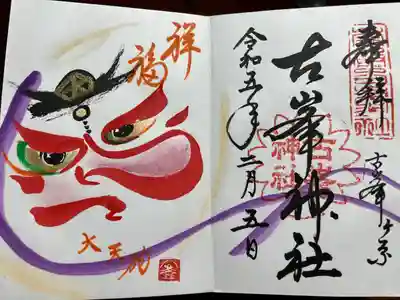 奉拝
古峯ヶ原
古峯神社
令和五年二月五日
祥福
大天狗